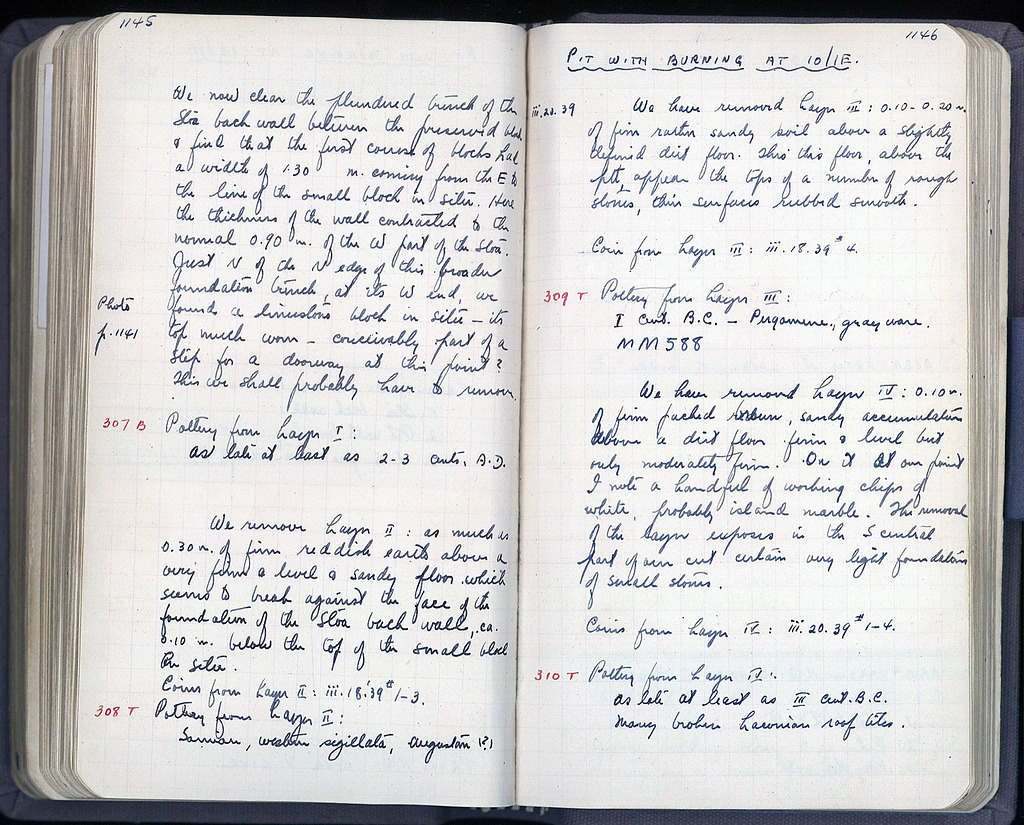 1145
We now clear the plundered trench of the
Stoa back wall between the preserved blocks
& find that the first course of blocks had
a width of 1.30 m. coming from the E to
the line of the small block in situ. Here
the thickness of the wall contracted to the
normal 0.90 m. of the W part of the Stoa.
Just N of the N edge of this broader
foundation trench, at its W end, we
Photo
p. 1141
found a limestone block in situ – its
top much worn – conceivably part of a
step for a doorway at this point?
This we shall probably have to remove.
307 B Pottery from Layer I
as late at least as 2-3 cents. A.D.
We remove Layer II : as much as
0.30 m. of firm reddish earth above a
very firm & level & sandy floor which
seems to break against the face of the
foundation of the Stoa back wall, ca.
0.10 m. below the top of the small block
in situ.
Coins from Layer II : iii.18.39 # 1-3.
308 T Pottery from Layer II :
Samian, western sigillata, Augustan (?)
1146
PIT WITH BURNING AT 10/IE.
iii.20.39 We have removed Layer III : 0.10-0.20 m.
of firm rather sandy soil above a slightly
defined dirt floor. Thro' this floor, above the
pit, appear the tops of a number of rough
stones, their surfaces rubbed smooth.
Coin from Layer III : iii.18.39 # 4.
309 T Pottery from Layer III :
I cent. B.C. – Pergamene, gray ware.
MM 588
We have removed Layer IV : 0.10 m.
of firm packed brown, sandy accumulation
above a dirt floor firm & level but
only moderately firm. On it at one point
I note a handful of working chips of
white, probably island marble. The removal
of the layer exposes in the S central
part of our cut certain very light foundations
of small stones.
Coins from Layer IV : iii.20.39 # 1-4.
310 T Pottery from Layer IV :
as late at least as III cent. B.C.
Many broken Laconian roof tiles.